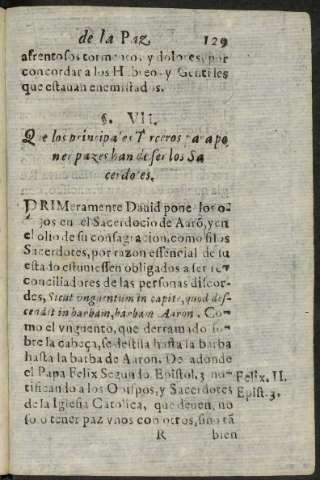 de la Paz 129
afrentosos tormentos, y dolores, por
concordar a los Hebreos y Gentiles
que estauan enemistados.
§. VII.
Que los principales Terceros para po
ner pazes han de ser los Sa
cerdotes.
PRIMeramente Dauid pone los o-
jos en el Sacerdocio de Aarō, y en
el olio de su consagracion, como si los
Sacerdotes, por razon essencial de su
estado estuuiessen obligados a ser re-
conciliadores de las personas discor-
des, Sicut vnguentum in capite, quod des-
cendit in barbam, barbam Aaron. Co-
mo el vnguento, que derramado so-
bre la cabeça, se destila hasta la barba
hasta la barba de Aaron. De adonde
el Papa Felix Segundo, Epistol. 3 no-
tificando a los Obispos, y Sacerdotes
de la Iglesia Catolica, que deuen, no
solo tener paz vnos con otros, sino tā
Felix. II.
Epist. 3.
R bien